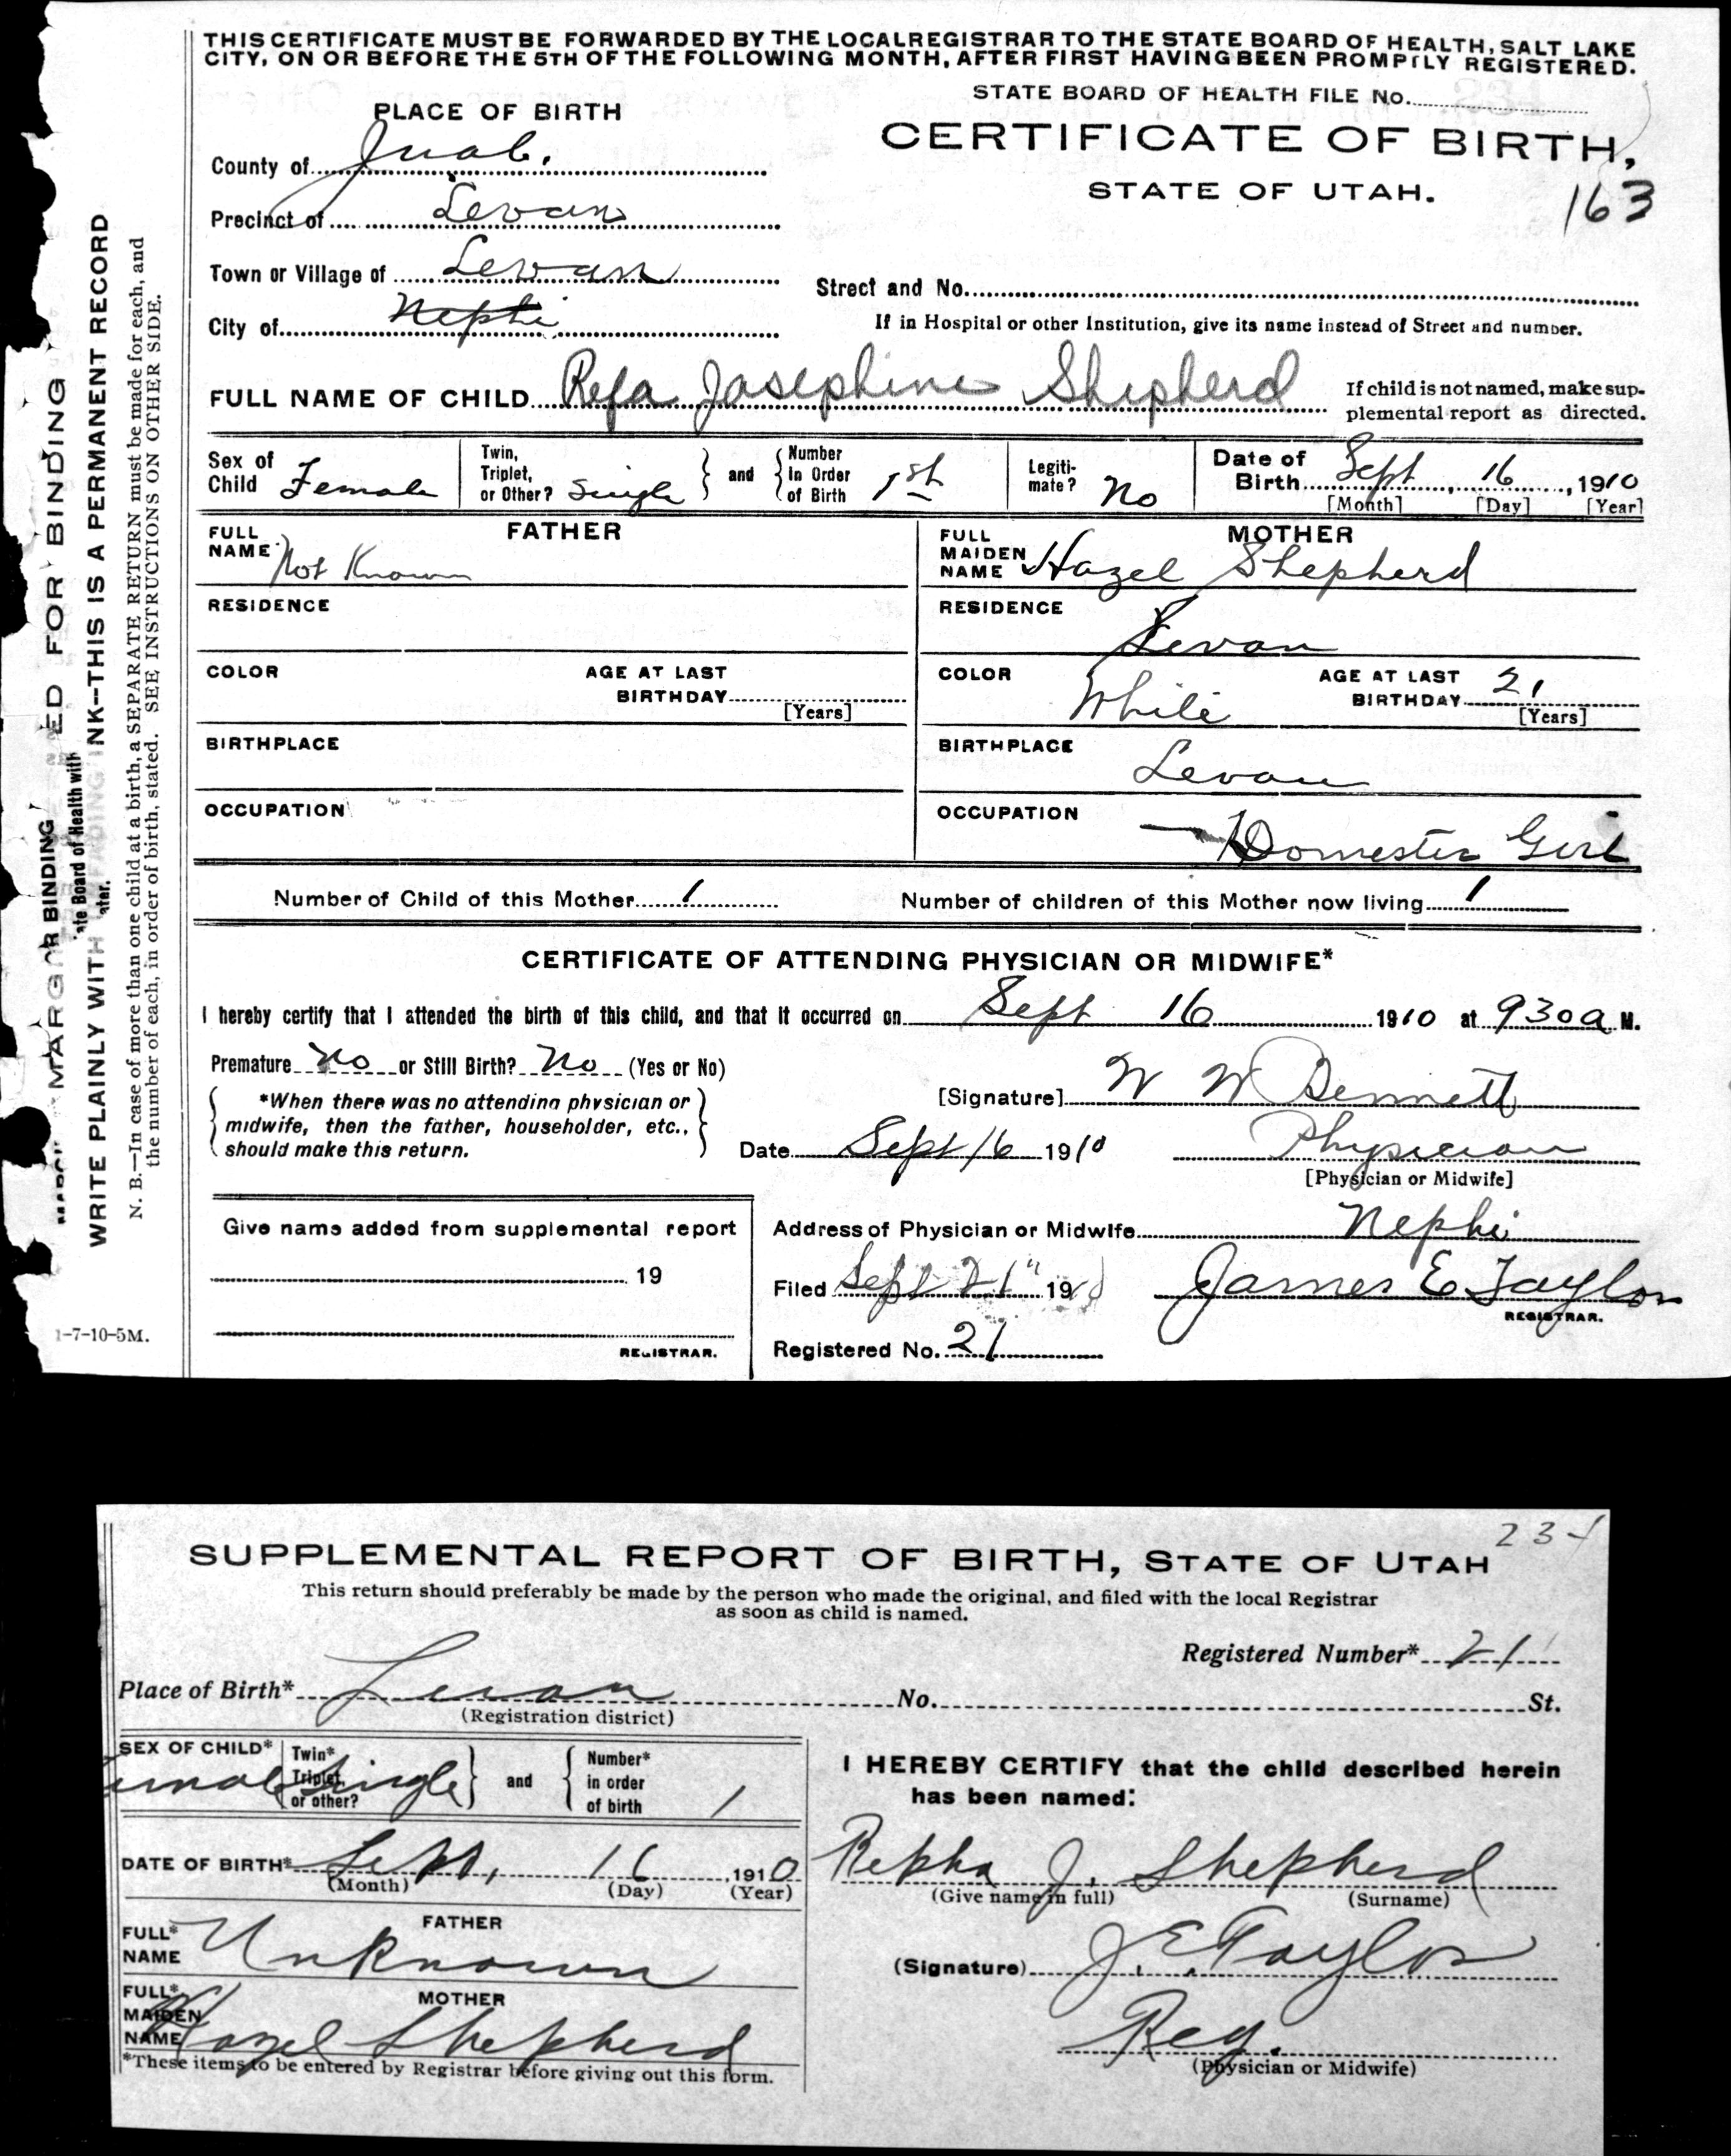 THIS CERTIFICATE MUST BE FORWARDED BY THE LOCAL REGISTRAR TO THE STATE BOARD OF HEALTH, SALT LAKE
CITY, ON OR BEFORE THE 5TH OF THE FOLLOWING MONTH, AFTER FIRST HAVING BEEN PROMPTLY REGISTERED.
STATE BOARD OF HEALTH FILE No.
CERTIFICATE OF BIRTH,
STATE OF UTAH.
163
PLACE OF BIRTH
County of Juab.
Precinct of Levan
Town or Village of Levan
City of Nephi
Street and No.
If in Hospital or other Institution, give its name instead of Street and number.
FULL NAME OF CHILD Refa Josephine Shepherd
If child is not named, make sup-
plemental report as directed.
Sex of Child Female
Twin, Triplet, or Other? Single and Number in Order of Birth 1st
Legiti-mate? No
Date of Birth Sept 16, 1910
[Month] [Day] [Year]
FATHER
FULL NAME Not Known
RESIDENCE
COLOR AGE AT LAST BIRTHDAY
[Years]
BIRTHPLACE
OCCUPATION
MOTHER
FULL MAIDEN NAME Hazel Shepherd
RESIDENCE
Levan
COLOR White AGE AT LAST BIRTHDAY 21
[Years]
BIRTHPLACE
Levan
OCCUPATION
Girl
Number of Child of this Mother 1 Number of children of this Mother now living 1
CERTIFICATE OF ATTENDING PHYSICIAN OR MIDWIFE*
I hereby certify that I attended the birth of this child, and that it occurred on Sept 16 1910 at 930a M.
Premature No or Still Birth? No (Yes or No)
*When there was no attending physician or
midwife, then the father, householder, etc.,
should make this return.
[Signature] W W Bennett
Date Sept 16 1910 Physician
[Physician or Midwife]
Give name added from supplemental report
19
REGISTRAR.
Address of Physician or Midwife Nephi
Filed Sept 21" 1910 James E Taylor
REGISTRAR.
Registered No. 21
1-7-10-5M.
MARG R BINDING ED FOR BINDING
ate Board of Health with
ater.
WRITE PLAINLY WITH UNFADING INK--THIS IS A PERMANENT RECORD
N. B.—In case of more than one child at a birth, a SEPARATE RETURN must be made for each, and
the number of each, in order of birth, stated. SEE INSTRUCTIONS ON OTHER SIDE.
SUPPLEMENTAL REPORT OF BIRTH, STATE OF UTAH
This return should preferably be made by the person who made the original, and filed with the local Registrar
as soon as child is named.
Registered Number* 21
Place of Birth* Levan No. St.
(Registration district)
SEX OF CHILD* Female
Twin* Triplet, or other? Single and Number* in order of birth 1
DATE OF BIRTH* Sept, 16, 1910
(Month) (Day) (Year)
FATHER
FULL* NAME Unknown
MOTHER
FULL* MAIDEN NAME Hazel Shepherd
*These items to be entered by Registrar before giving out this form.
I HEREBY CERTIFY that the child described herein
has been named:
Repha J. Shepherd
(Give name in full) (Surname)
(Signature) J. E. Taylor
Reg.
(Physician or Midwife)